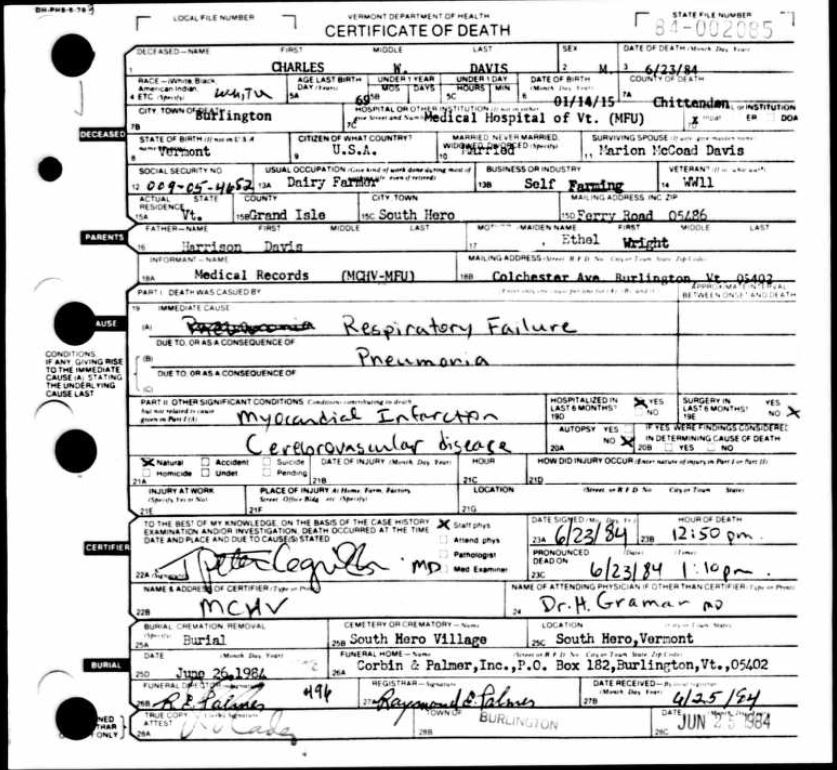 DH-PHS-
LOCAL FILE NUMBER
VERMONT DEPARTMENT OF HEALTH
CERTIFICATE OF DEATH
STATE FILE NUMBER
84-002085
DECEASED—NAME FIRST MIDDLE LAST SEX DATE OF DEATH (Month, Day, Year)
1 CHARLES W. DAVIS 2 M. 3 6/23/84
RACE—(White, Black, American Indian, ETC. (Specify) AGE LAST BIRTH DAY (Years) UNDER 1 YEAR MOS DAYS UNDER 1 DAY HOURS MIN DATE OF BIRTH (Month, Day, Year) COUNTY OF DEATH
4 5A 69 5B 5C 6 01/14/15 7A Chittenden
CITY, TOWN OF DEATH HOSPITAL OR OTHER INSTITUTION (If not in either, give Street and Number) INSTITUTION
7B Burlington 7C Medical Hospital of Vt. (MFU) x Inpat ER DOA
DECEASED
STATE OF BIRTH (If not in U.S.A. name country) CITIZEN OF WHAT COUNTRY? MARRIED, NEVER MARRIED, WIDOWED, DIVORCED (Specify) SURVIVING SPOUSE (If wife, give maiden name)
8 Vermont 9 U.S.A. Married 11 Marion McCoad Davis
SOCIAL SECURITY NO USUAL OCCUPATION (Give kind of work done during most of life, even if retired) BUSINESS OR INDUSTRY VETERAN? (If so, what war?)
12 009-05-4652 13A Dairy Farmer 13B Self Farming 14 WW11
ACTUAL RESIDENCE STATE COUNTY CITY, TOWN MAILING ADDRESS INC ZIP
15A Vt. 15B Grand Isle 15C South Hero 15D Ferry Road 05486
PARENTS
FATHER—NAME FIRST MIDDLE LAST MOTHER MAIDEN NAME FIRST MIDDLE LAST
16 Harrison Davis 17 Ethel Wright
INFORMANT—NAME MAILING ADDRESS (Street, R.F.D. No., City or Town, State, Zip Code)
18A Medical Records (MCHV-MFU) 18B Colchester Ave. Burlington, Vt. 05402
PART I. DEATH WAS CASUED BY APPROXIMATE INTERVAL BETWEEN ONSET AND DEATH
19 IMMEDIATE CAUSE
AUSE
(A) Pneumonia Respiratory Failure
DUE TO, OR AS A CONSEQUENCE OF
(B) Pneumonia
DUE TO, OR AS A CONSEQUENCE OF
(C)
CONDITIONS IF ANY, GIVING RISE TO THE IMMEDIATE CAUSE (A), STATING THE UNDERLYING CAUSE LAST
PART II. OTHER SIGNIFICANT CONDITIONS Conditions contributing to death but not related to cause given in Part I (A) HOSPITALIZED IN LAST 6 MONTHS? X YES NO 19D SURGERY IN LAST 6 MONTHS? YES NO X 19E
Myocardial Infarction
Cerebrovascular disease
AUTOPSY YES NO X 20A IF YES WERE FINDINGS CONSIDERED IN DETERMINING CAUSE OF DEATH 20B YES NO
X Natural Accident Suicide Homicide Undet Pending DATE OF INJURY (Month, Day, Year) HOUR HOW DID INJURY OCCUR (Enter nature of injury in Part I or Part II)
21A 21B 21C 21D
INJURY AT WORK (Specify Yes or No) PLACE OF INJURY At Home, Farm, Factory, Street, Office Bldg. etc. (Specify) LOCATION (Street or R.F.D. No. City or Town State)
21E 21F 21G
CERTIFIER
TO THE BEST OF MY KNOWLEDGE, ON THE BASIS OF THE CASE HISTORY EXAMINATION AND/OR INVESTIGATION, DEATH OCCURRED AT THE TIME DATE AND PLACE AND DUE TO CAUSE(S) STATED
X Staff phys Attend phys Pathologist Med Examiner
22A MD
DATE SIGNED (Mo, Day, Yr) 23A 6/23/84 HOUR OF DEATH 23B 12:50 pm.
PRONOUNCED DEAD ON (Date) (Time) 23C 6/23/84 1:10pm.
NAME & ADDRESS OF CERTIFIER (Type or Print) NAME OF ATTENDING PHYSICIAN IF OTHER THAN CERTIFIER (Type or Print)
22B MCHV 24 Dr. H. Graman MD
BURIAL, CREMATION, REMOVAL (Specify) CEMETERY OR CREMATORY—Name LOCATION (City or Town, State)
25A Burial 25B South Hero Village 25C South Hero, Vermont
BURIAL
DATE (Month, Day, Year) FUNERAL HOME—Name (Street or R.F.D. No. City or Town, State, Zip Code)
25D June 26, 1984 26A Corbin & Palmer,Inc.,P.O. Box 182,Burlington,Vt.,05402
FUNERAL DIRECTOR—Signature REGISTRAR—Signature DATE RECEIVED—By (Month, Day, Year)
26B R E Palmer #196 27A Raymond E. Palmer 27B 6/25/84
TRUE COPY ATTEST TOWN OF DATE
28A 28B BURLINGTON 28C JUN 25 1984